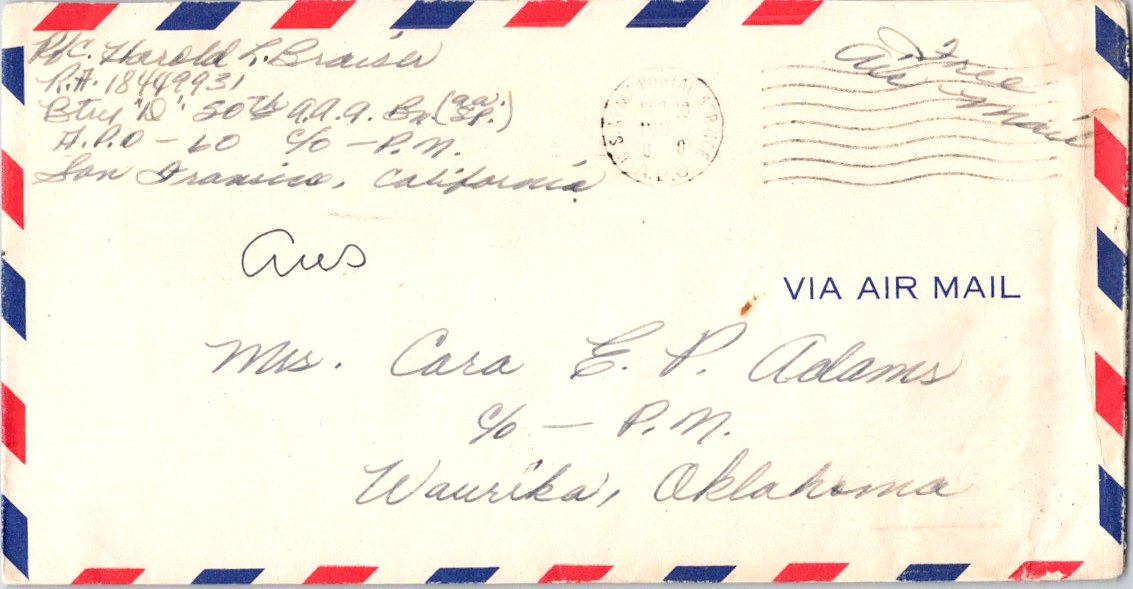 Pfc. Harold L. Braiser
R.A. 18449931
Btry "D" 50th A.A.A. Bn. (a.a. S.P.)
A.P.O - 60 c/o - P.M.
San Fransico, California
Free
Air Mail
Ans
VIA AIR MAIL
Mrs. Cara E. P. Adams
c/o - P.M.
Waurika, Oklahoma